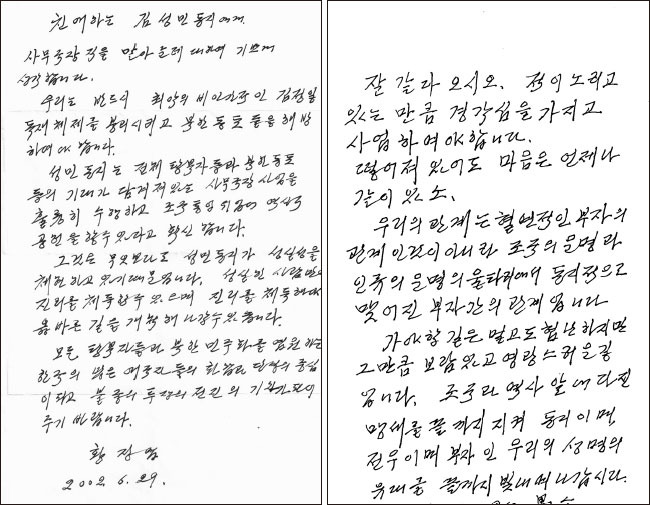 친애하는 김성민 동지에게
사무국장 직을 맡아 는데 대하여 기쁘게
생각합니다.
우리는 반드시 최악의 비인간적인 김정일
독재체제를 붕괴시키고 북한 동포들을 해방
하여야 합니다.
성민 동지는 전체 탈북자들과 북한동포
들의 기대가 담겨져있는 사무국장 사업을
훌륭히 수행하고 조국통일 위업에 역사적
공헌을 할수있으리라고 확신합니다.
그것은 무엇보다도 성민동지가 성실성을
체현하고 있기때문입니다. 성실한 사람만이
진리를 체득할수 있으며 진리를 체득해야
올바른 길을 개척해 나갈수있습니다.
모든 탈북자들과 북한 민주화를 염원하는
한국의 많은 애국자들의 화합과 단결의 중심
이 되고 불굴의 투쟁의 전진의 기관차가 되어
주기 바랍니다.
황장엽
2002. 6. 29.
잘 갈라 오시오. 적이 노리고
있는 만큼 경각심을 가지고
사업하여야합니다.
떨어져 있어도 마음은 언제나
같이 있소.
우리의 관계는 혈연적인 부자의
관계인것이 아니라 조국의 운명과
인류의 운명의 울타리에서 동지적으로
맺어진 부자간의 관계입니다
가야할 길은 멀고도 험난하지만
그만큼 보람있고 영광스러운길
입니다. 조국과 역사 앞에 다진
맹세를 끝까지 지켜 동지이며,
전우이며 부자인 우리의 생명의
유대를 끝까지 빛내며 나갑시다.